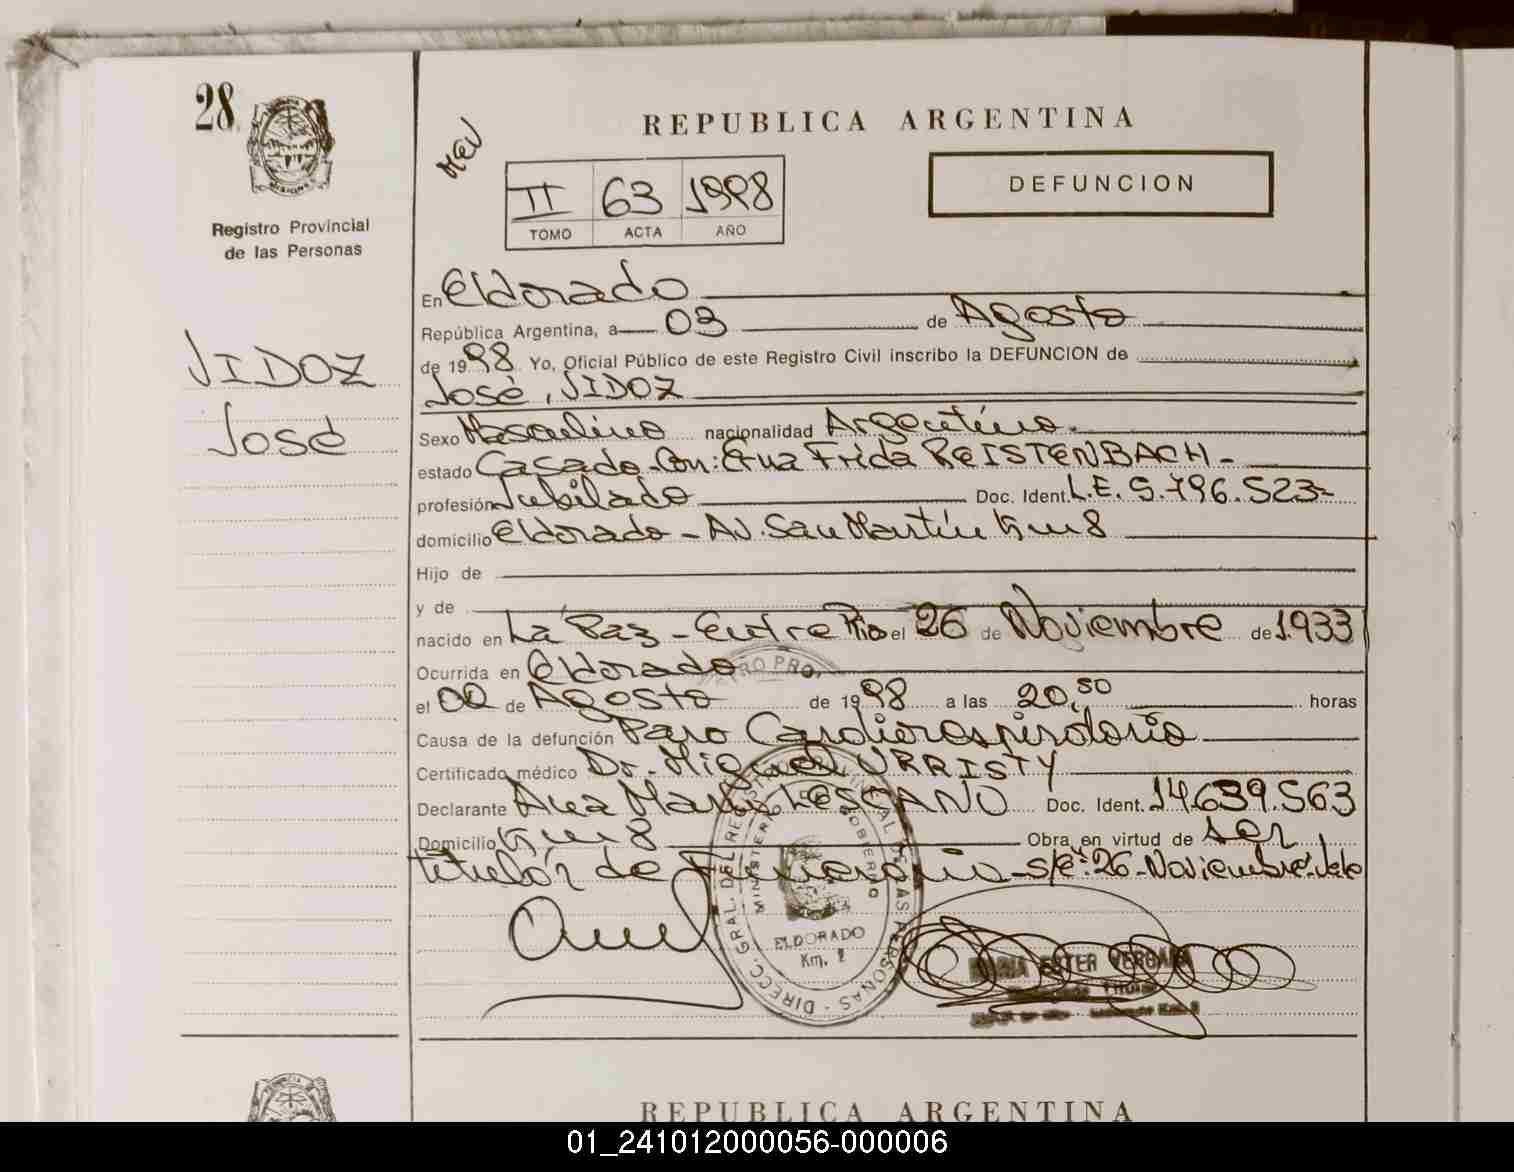 28
Registro Provincial
de las Personas
JIDOZ
José
REPUBLICA ARGENTINA
II 63 1998
TOMO ACTA AÑO
DEFUNCION
En Eldorado
República Argentina, a 03 de Agosto
de 1998 Yo, Oficial Público de este Registro Civil inscribo la DEFUNCION de
José, JIDOZ
Sexo Masculino nacionalidad Argentino.
estado Casado-Con: Erna Frida REISTENBACH-
profesión Jubilado Doc. Ident. L.E. 5.796.523-
domicilio Eldorado - Av. San Martín Km 8
Hijo de
y de
nacido en La Paz - Entre Rio el 26 de Noviembre de 1933
Ocurrida en Eldorado
el 02 de Agosto de 1998 a las 20,50 horas
Causa de la defunción Paro Cardiorespiratorio
Certificado médico Dr. Miguel URRISTY
Declarante Ana María LESCANO Doc. Ident. 14.639.563
Domicilio Km 8 Obra en virtud de ser
titular de Funeraria - s/e: 26-Noviembre-Vale
DIRECC. GRAL. DEL REGISTRO PROVINCIAL DE LAS PERSONAS
MINISTERIO DE GOBIERNO
ELDORADO
Km.
MARIA ESTER VERGARA
REPUBLICA ARGENTINA
01_241012000056-000006